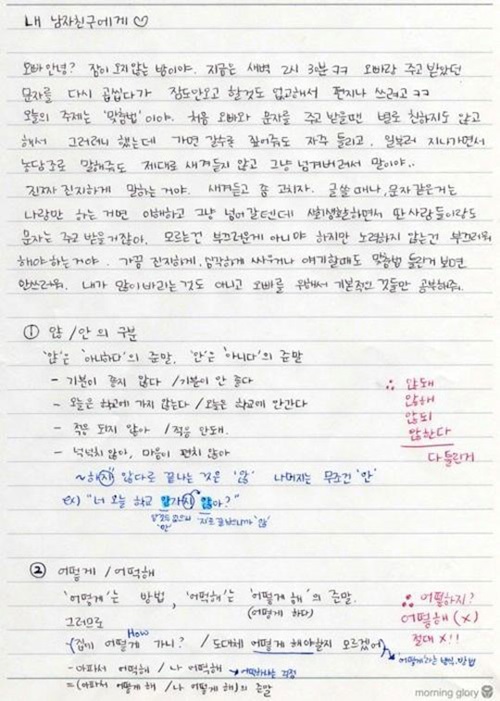 내 남자친구에게 ♡
오빠안녕? 잠이 오지않는 밤이야. 지금은 새벽 2시 30분 ㅋㅋ 오빠랑 주고받았던
문자를 다시 곱씹다가 잠도안오고 할것도 없고해서 편지나 쓰려고 ㅋㅋ
오늘의 주제는 '맞춤법'이야. 처음 오빠와 문자를 주고 받을땐 별로 친하지도 않고
해서 그러려니 했는데 가면 갈수록 짚어줘도 자주 틀리고, 일부러 지나가면서
농담조로 말해줘도 제대로 새겨듣지 않고 그냥 넘겨버려서 말이야..
진짜 진지하게 말하는 거야. 새겨듣고 좀 고치자. 글쓸 때나, 문자같은거는
나랑만 하는 거면 이해하고 그냥 넘어갈텐데 사회생활하면서 딴사람들이랑도
문자는 주고 받을거잖아. 모르는건 부끄러운게 아니야 하지만 노력하지 않는건 부끄러워
해야하는거야. 가끔 진지하게, 심각하게 싸우거나 얘기할때도 맞춤법 틀린거 보면
안쓰러워. 내가 많이바라는것도 아니고 오빠를 위해서 기본적인 것들만 공부해줘.
① 않/안 의 구분
'않'은 '아니하다'의 준말, '안'은 '아니다'의 준말
- 기분이 좋지 않다 / 기분이 안 좋다
- 오늘은 학교에 가지 않는다 / 오늘은 학교에 안간다
- 적응 되지 않아 / 적응 안돼.
- 넉넉치 않아, 마음이 편치 않아
~하지 않다로 끝나는 것은 '않' 나머지는 무조건 '안'
ex) "너 오늘 학교 안가지 않아?"
'안'
'지'로 끝났으니까 '않'
∴ 않돼
않해
않되
않한다
다 틀린거
② 어떻게 / 어떡해
'어떻게'는 방법, '어떡해'는 '어떻게 해'의 준말.
(어떻게 하다)
그러므로
How
- 집에 어떻게 가니? / 도대체 어떻게 해야할지 모르겠어
어떻게라는 방법
- 아파서 어떡해 / 나 어떡해
= (아파서 어떻게 해 / 나 어떻게 해)의 준말
∴ 어떻하지?
어떻해 (X)
절대 X!!
morning glory